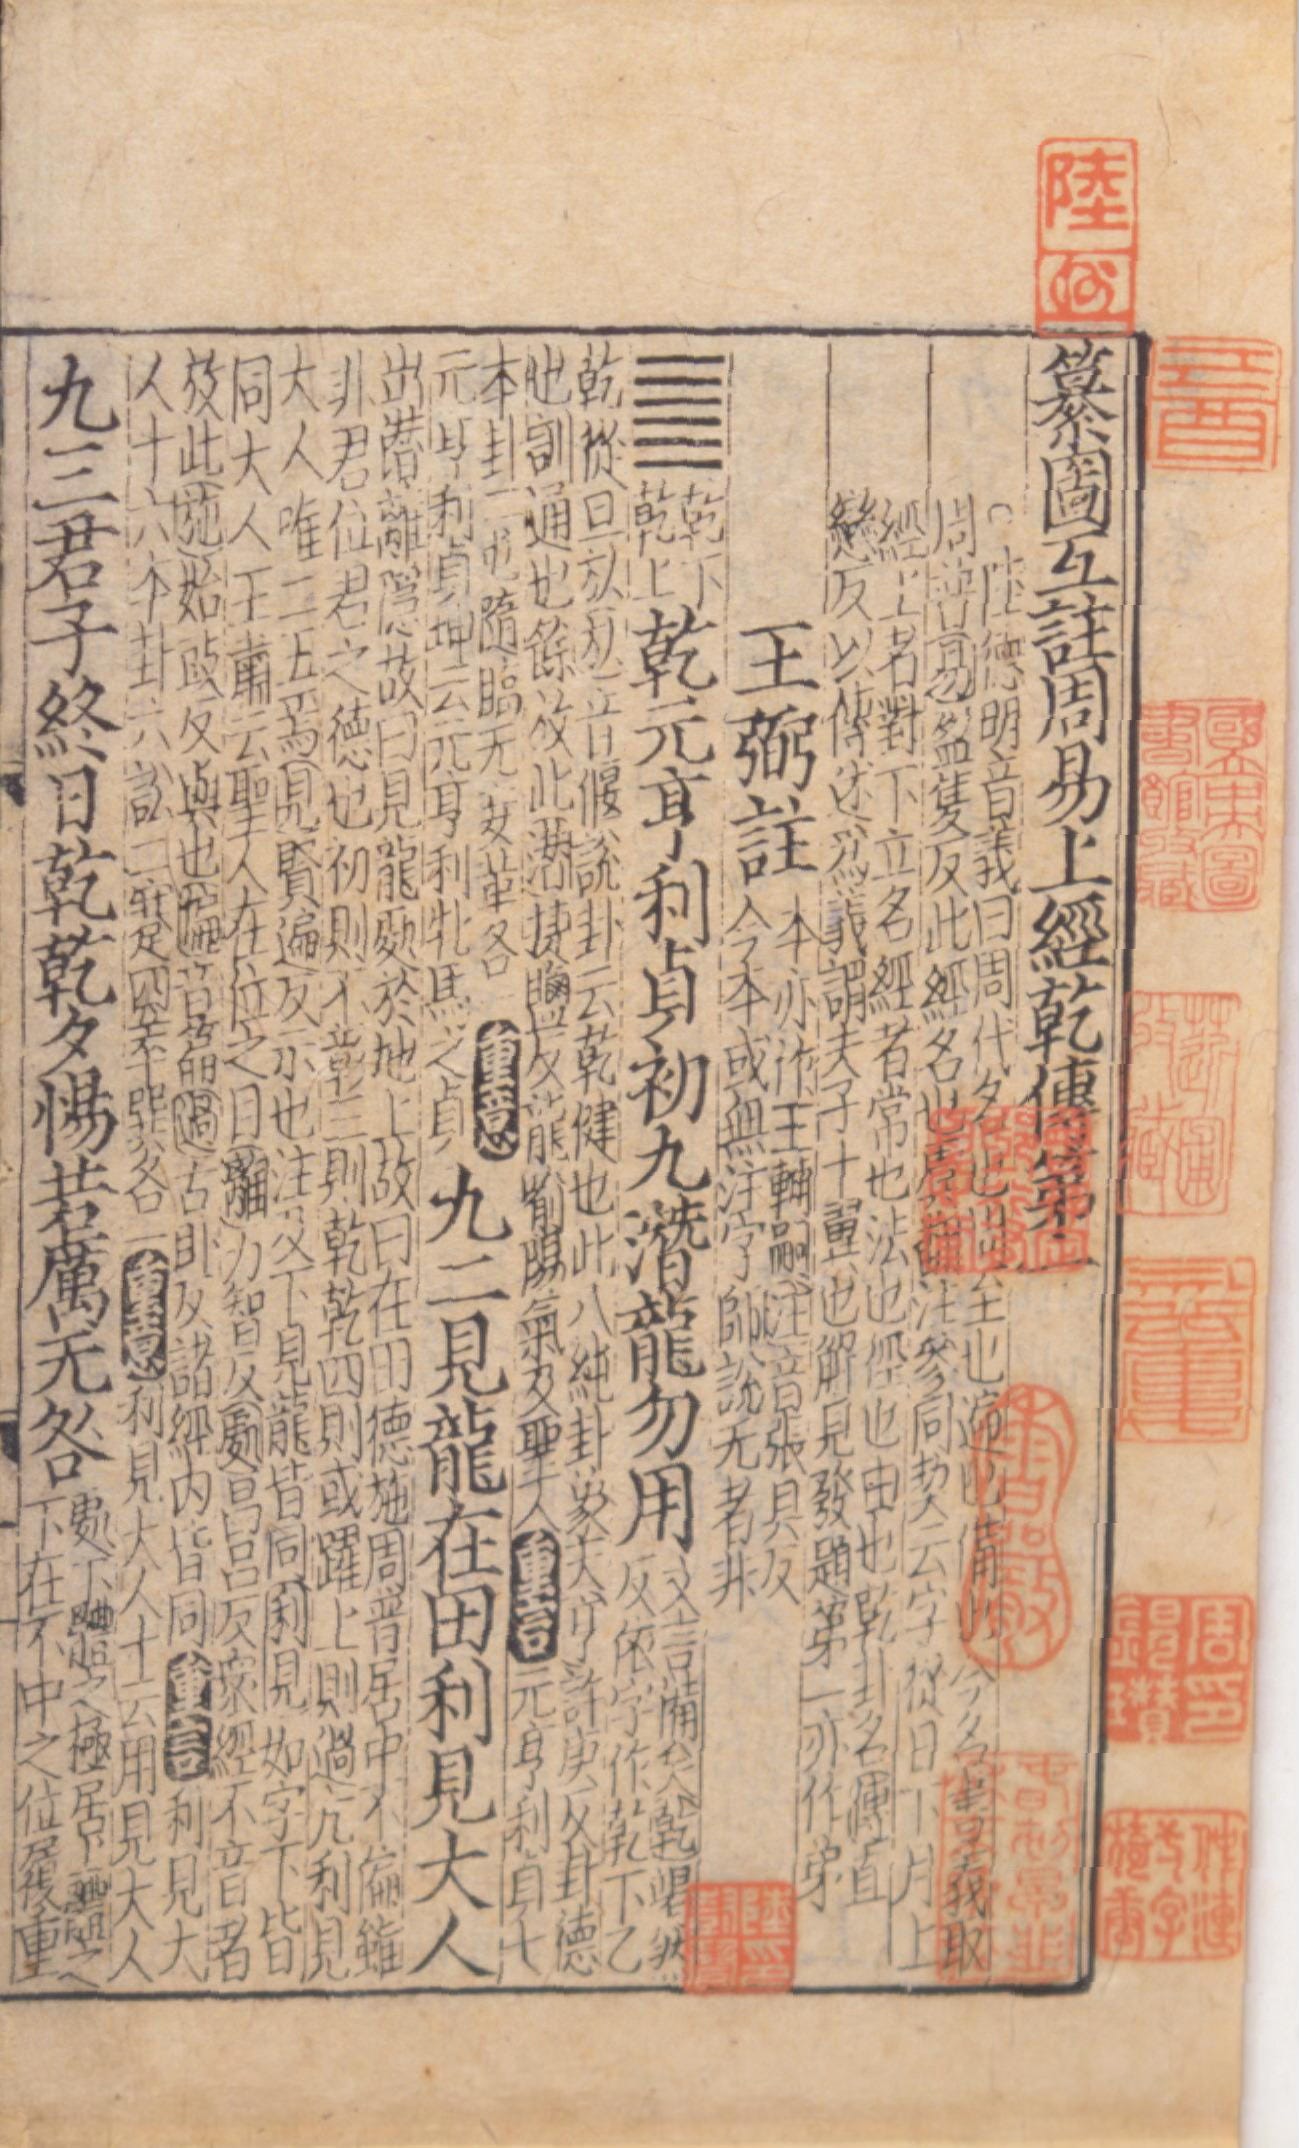 纂圖互註周易上經乾傳第一
陸德明音義曰周代名也周至也遍也備也今名書義取
周普易盈隻反此經名也虞翻注參同契云字從日下月上
經上者對下立名經者常也法也徑也由也乾卦名傳直
戀反以傳述爲義謂夫子十翼也解見發題第一亦作弟
王弼註
本亦作王輔嗣注音張具反
今本或無注字師說无者非
乾下
乾上
乾元亨利貞初九潛龍勿用
文言備矣乾竭然
反依字作乾下乙
乾從旦㫃㫃音偃說卦云乾健也此八純卦象天亨許庚反卦德
也訓通也餘放此潛捷鹽反龍喻陽氣及聖人
重言
元亨利貞七
本卦二屯隨臨无妄革各一
元亨利貞坤云元亨利牝馬之貞
重意
九二見龍在田利見大人
出潛離隱故曰見龍處於地上故曰在田德施周普居中不偏雖
非君位君之德也初則不彰三則乾乾四則或躍上則過亢利見
大人唯二五焉見賢遍反示也注及下見龍皆同利見如字下皆
同大人王肅云聖人在位之目離力智反處昌呂反衆經不音者
放此施始豉反與也徧音遍過古臥反諸經內皆同
重言
利見大
人十六本卦六訟二蹇四萃巽各一
重意
利見大人十云用見大人
九三君子終日乾乾夕惕若厲无咎
處下體之極居上體之
下在不中之位履重